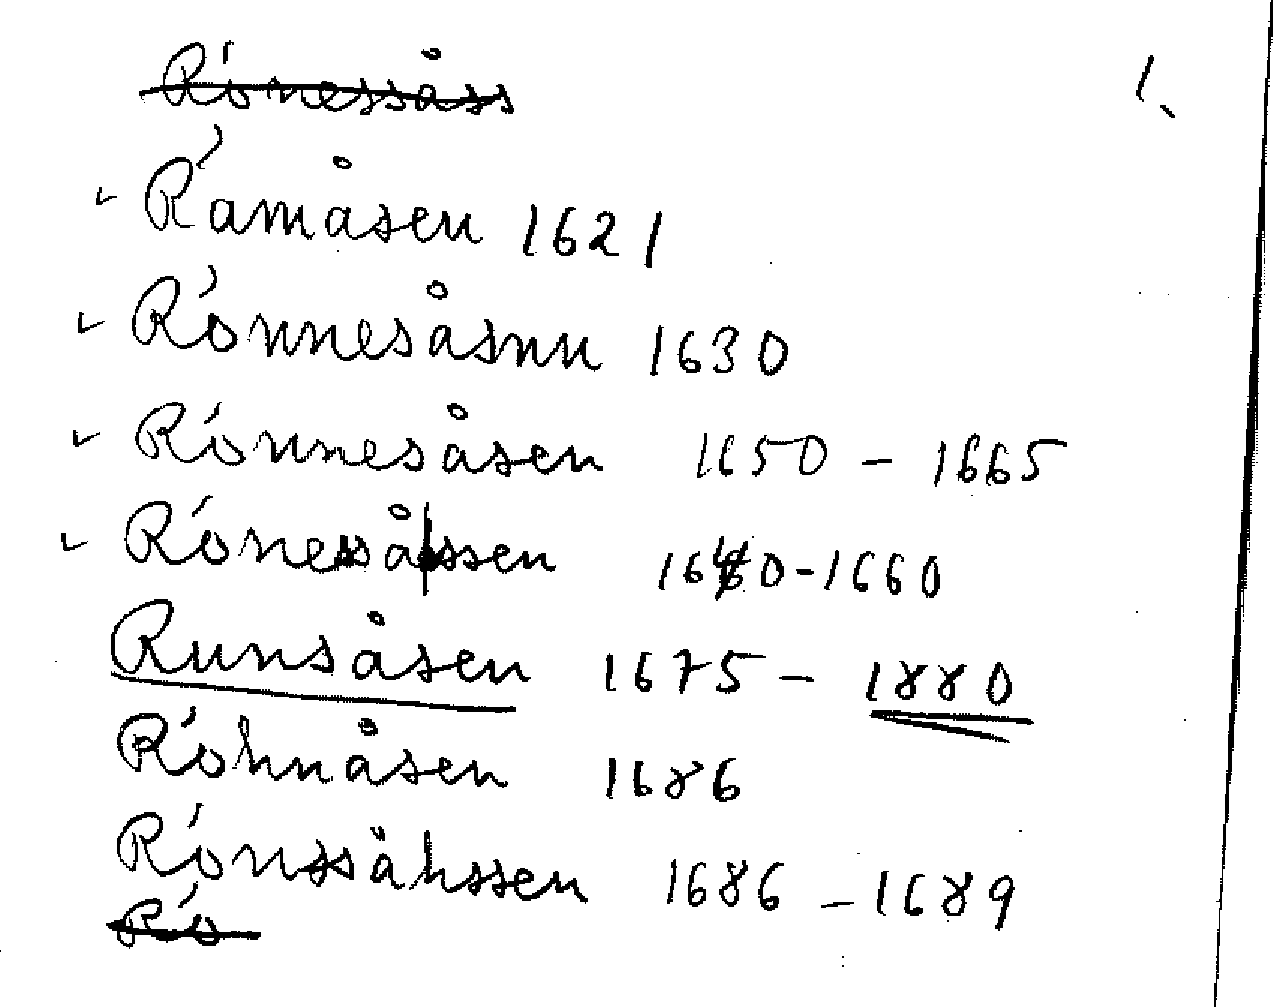 Rónessåss
1.
Rámåsen 1621
Rónnesåsnn 1630
Rónnesåsen 1650 - 1665
Rónessåhssen 1640-1660
Runsåsen 1675 - 1880
Róhnåsen 1686
Rónssåhssen 1686 - 1689
Ró